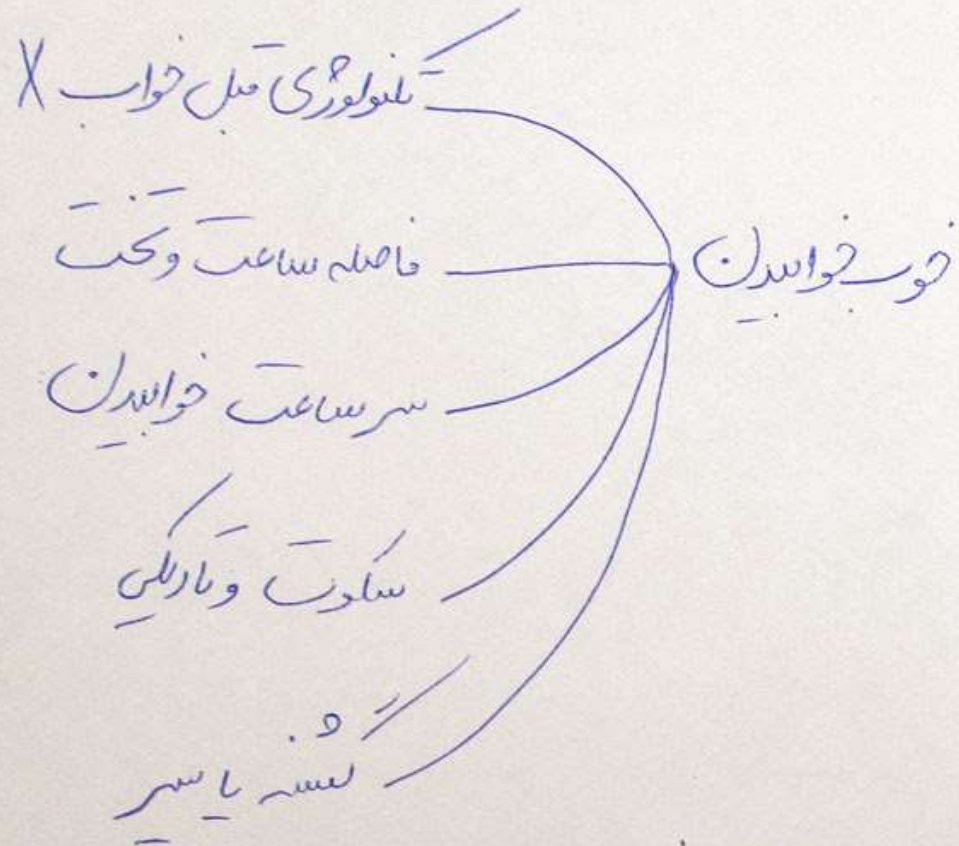 خوب خوابیدن
تکنولوژی قبل خواب X
فاصله ساعت و تخت
سر ساعت خوابیدن
سکوت و تاریکی
گشنه یا سیر